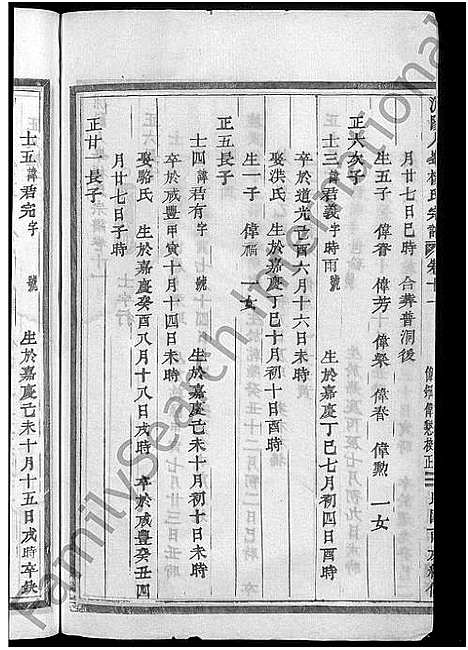 月廿七日巳時 合葬普洞後
生五子 偉香 偉芳 偉榮 偉春 偉勲 一女
正六次子
士三諱君義字時雨號 生於嘉慶丁巳七月初四日酉時
卒於道光己酉六月十六日未時
娶洪氏 生於嘉慶丁巳十月初十日酉時
生一子 偉福 一女
正五長子
士四諱君有字 號 生於嘉慶己未十月初十日未時
卒於咸豐甲寅十月十四日未時
娶駱氏 生於嘉慶癸酉八月十八日戌時 卒於咸豐癸丑四
月廿七日子時
正廿一長子
士五諱君完字 號 生於嘉慶己未十月十五日戌時卒缺
FamilySearch International